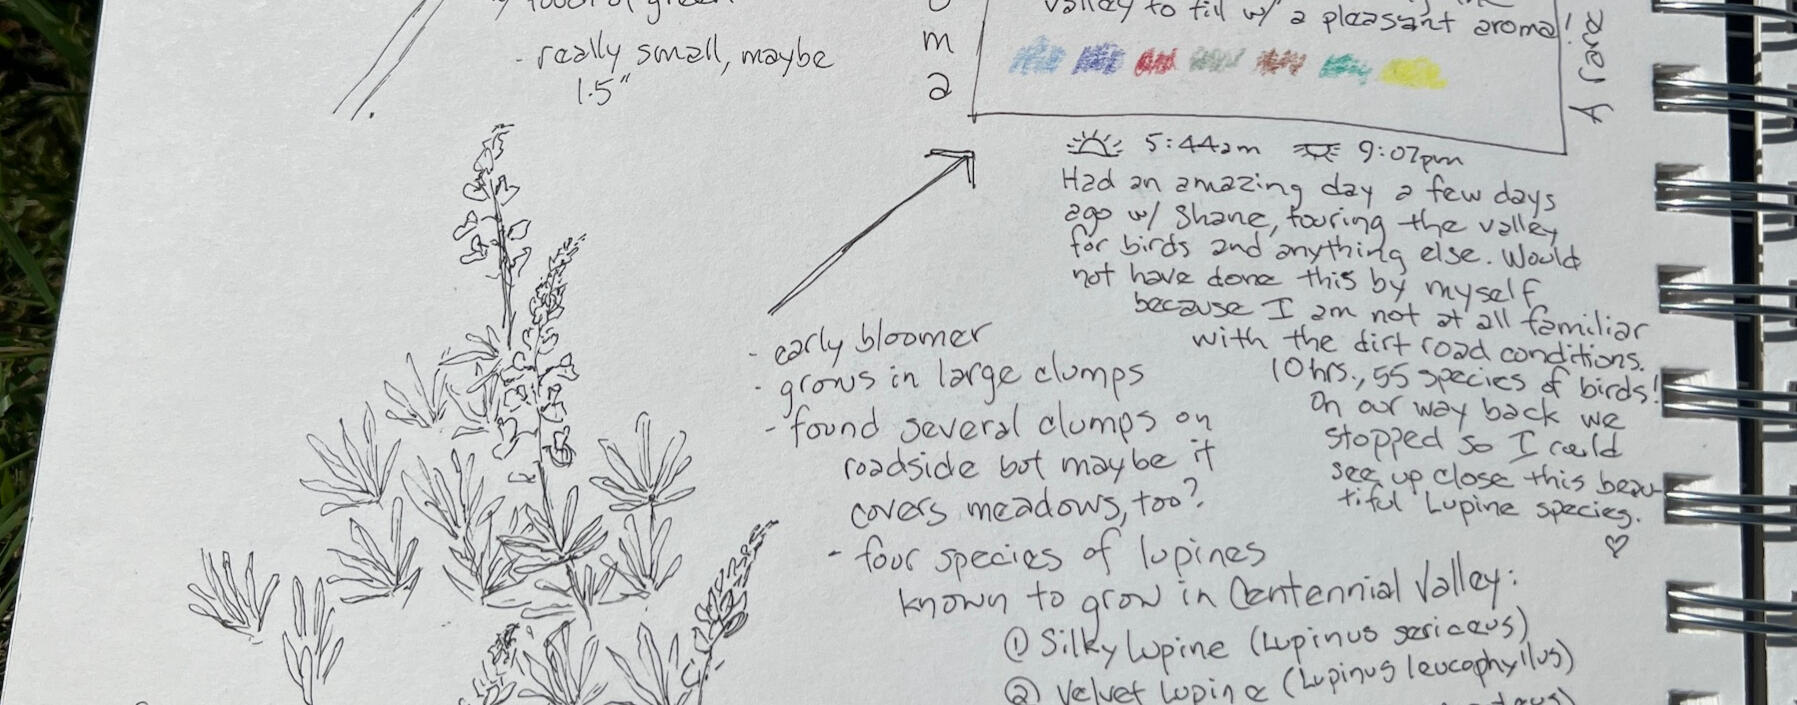 touch of green
- really small, maybe
1.5"
o
m
a
valley to fill w/ a pleasant aroma!
5:44am 9:07pm
Had an amazing day a few days
ago w/ Shane, touring the valley
for birds and anything else. Would
not have done this by myself
because I am not at all familiar
with the dirt road conditions.
10 hrs., 55 species of birds!
On our way back we
stopped so I could
see up close this beau-
tiful Lupine species.
♡
- early bloomer
- grows in large clumps
- found several clumps on
roadside but maybe it
covers meadows, too?
- four species of lupines
known to grow in Centennial Valley:
① Silky Lupine (Lupinus sericeus)
② Velvet Lupine (Lupinus leucophyllus)